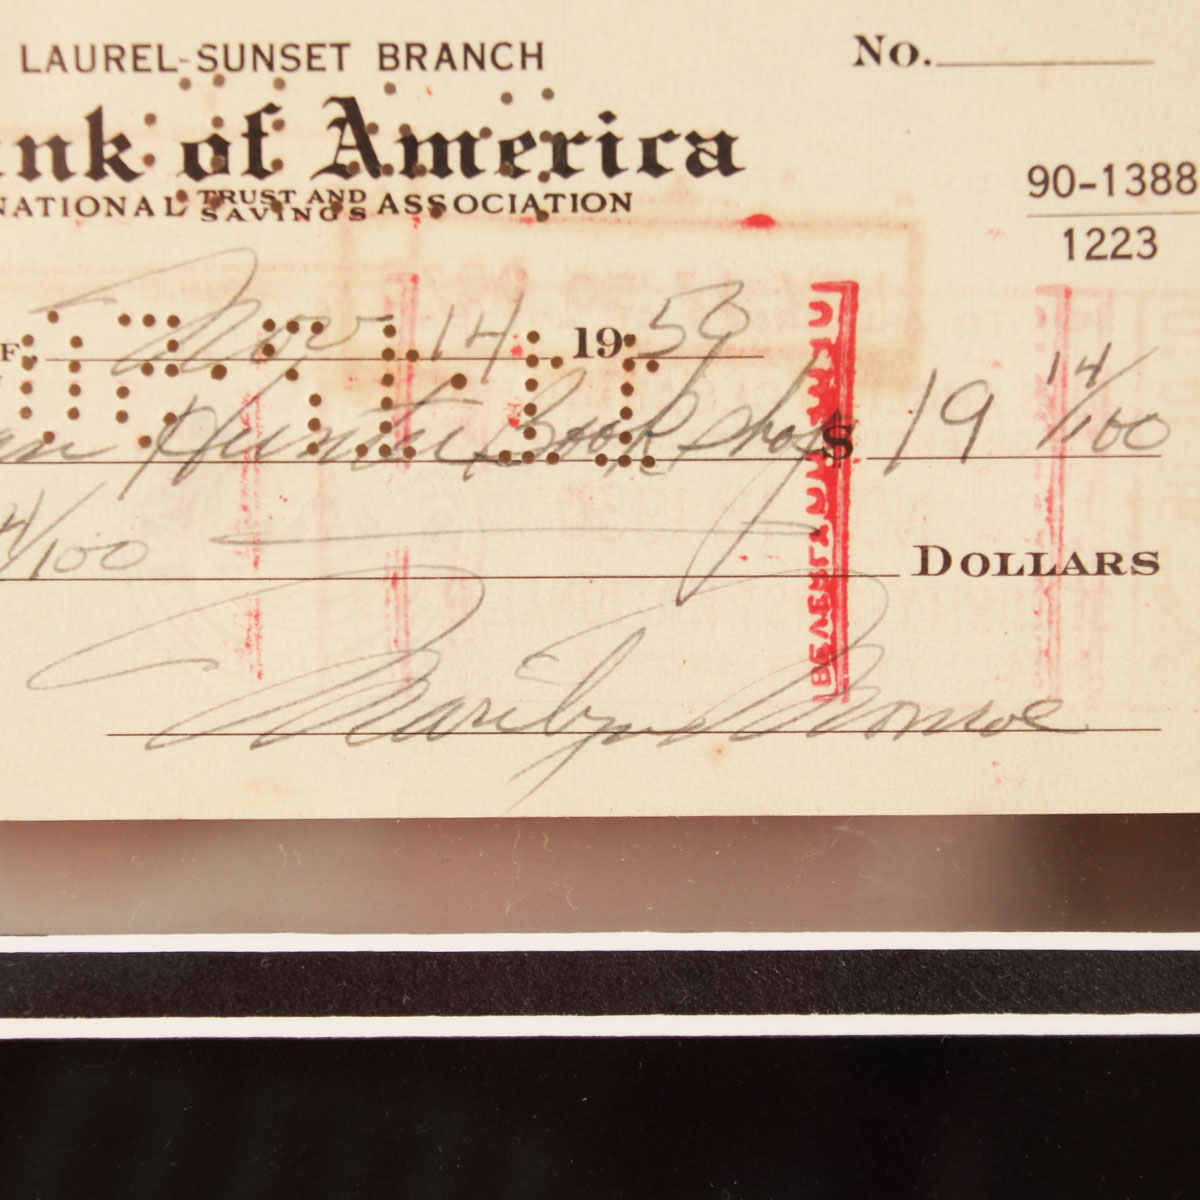 LAUREL-SUNSET BRANCH No.
ank of America
NATIONAL TRUST AND SAVINGS ASSOCIATION
90-1388
1223
Nov 14 1959
Hunter Book Shop $ 19 14/100
4/100 DOLLARS
Marilyn Monroe